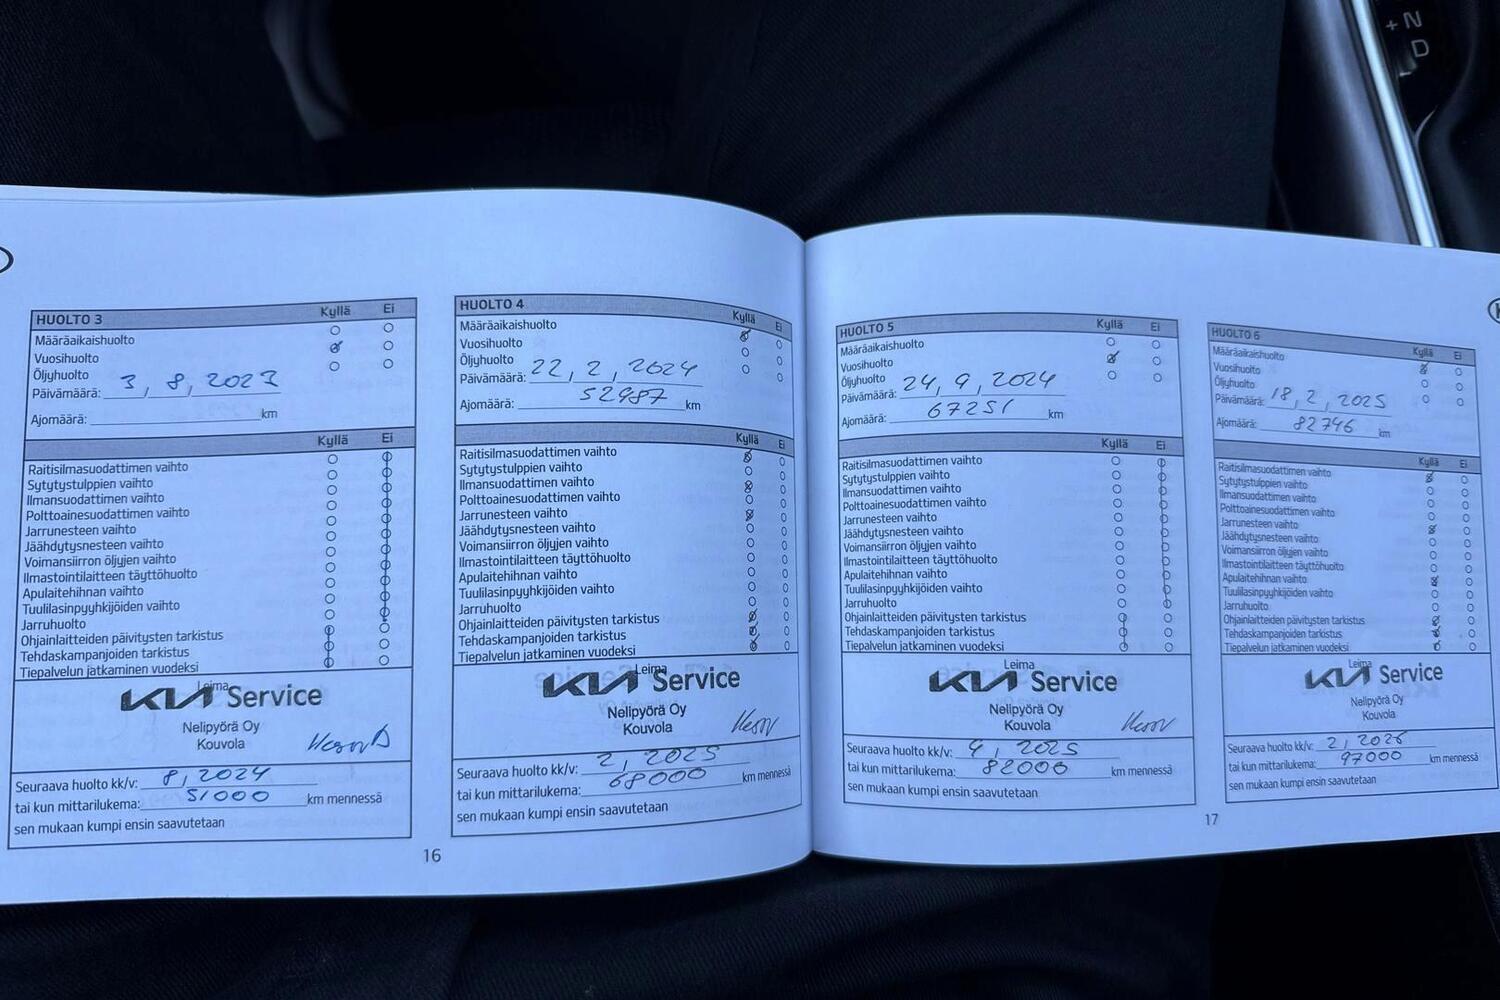 + N
D
HUOLTO 3 Kyllä Ei
Määräaikaishuolto
Vuosihuolto
Öljyhuolto
Päivämäärä: 3, 8, 2023
Ajomäärä: km
Kyllä Ei
Raitisilmasuodattimen vaihto
Sytytystulppien vaihto
Ilmansuodattimen vaihto
Polttoainesuodattimen vaihto
Jarrunesteen vaihto
Jäähdytysnesteen vaihto
Voimansiirron öljyjen vaihto
Ilmastointilaitteen täyttöhuolto
Apulaitehihnan vaihto
Tuulilasinpyyhkijöiden vaihto
Jarruhuolto
Ohjainlaitteiden päivitysten tarkistus
Tehdaskampanjoiden tarkistus
Tiepalvelun jatkaminen vuodeksi
Leima
KIA Service
Nelipyörä Oy
Kouvola
Seuraava huolto kk/v: 8, 2024
tai kun mittarilukema: 51000 km mennessä
sen mukaan kumpi ensin saavutetaan
16
HUOLTO 4 Kyllä Ei
Määräaikaishuolto
Vuosihuolto
Öljyhuolto
Päivämäärä: 22, 2, 2024
Ajomäärä: 52987 km
Kyllä Ei
Raitisilmasuodattimen vaihto
Sytytystulppien vaihto
Ilmansuodattimen vaihto
Polttoainesuodattimen vaihto
Jarrunesteen vaihto
Jäähdytysnesteen vaihto
Voimansiirron öljyjen vaihto
Ilmastointilaitteen täyttöhuolto
Apulaitehihnan vaihto
Tuulilasinpyyhkijöiden vaihto
Jarruhuolto
Ohjainlaitteiden päivitysten tarkistus
Tehdaskampanjoiden tarkistus
Tiepalvelun jatkaminen vuodeksi
Leima
KIA Service
Nelipyörä Oy
Kouvola
Seuraava huolto kk/v: 2, 2025
tai kun mittarilukema: 68000 km mennessä
sen mukaan kumpi ensin saavutetaan
HUOLTO 5 Kyllä Ei
Määräaikaishuolto
Vuosihuolto
Öljyhuolto
Päivämäärä: 24, 9, 2024
Ajomäärä: 67251 km
Kyllä Ei
Raitisilmasuodattimen vaihto
Sytytystulppien vaihto
Ilmansuodattimen vaihto
Polttoainesuodattimen vaihto
Jarrunesteen vaihto
Jäähdytysnesteen vaihto
Voimansiirron öljyjen vaihto
Ilmastointilaitteen täyttöhuolto
Apulaitehihnan vaihto
Tuulilasinpyyhkijöiden vaihto
Jarruhuolto
Ohjainlaitteiden päivitysten tarkistus
Tehdaskampanjoiden tarkistus
Tiepalvelun jatkaminen vuodeksi
Leima
KIA Service
Nelipyörä Oy
Kouvola
Seuraava huolto kk/v: 9, 2025
tai kun mittarilukema: 82000 km mennessä
sen mukaan kumpi ensin saavutetaan
17
HUOLTO 6 Kyllä Ei
Määräaikaishuolto
Vuosihuolto
Öljyhuolto
Päivämäärä: 18, 2, 2025
Ajomäärä: 82746 km
Kyllä Ei
Raitisilmasuodattimen vaihto
Sytytystulppien vaihto
Ilmansuodattimen vaihto
Polttoainesuodattimen vaihto
Jarrunesteen vaihto
Jäähdytysnesteen vaihto
Voimansiirron öljyjen vaihto
Ilmastointilaitteen täyttöhuolto
Apulaitehihnan vaihto
Tuulilasinpyyhkijöiden vaihto
Jarruhuolto
Ohjainlaitteiden päivitysten tarkistus
Tehdaskampanjoiden tarkistus
Tiepalvelun jatkaminen vuodeksi
Leima
KIA Service
Nelipyörä Oy
Kouvola
Seuraava huolto kk/v: 2, 2026
tai kun mittarilukema: 97000 km mennessä
sen mukaan kumpi ensin saavutetaan